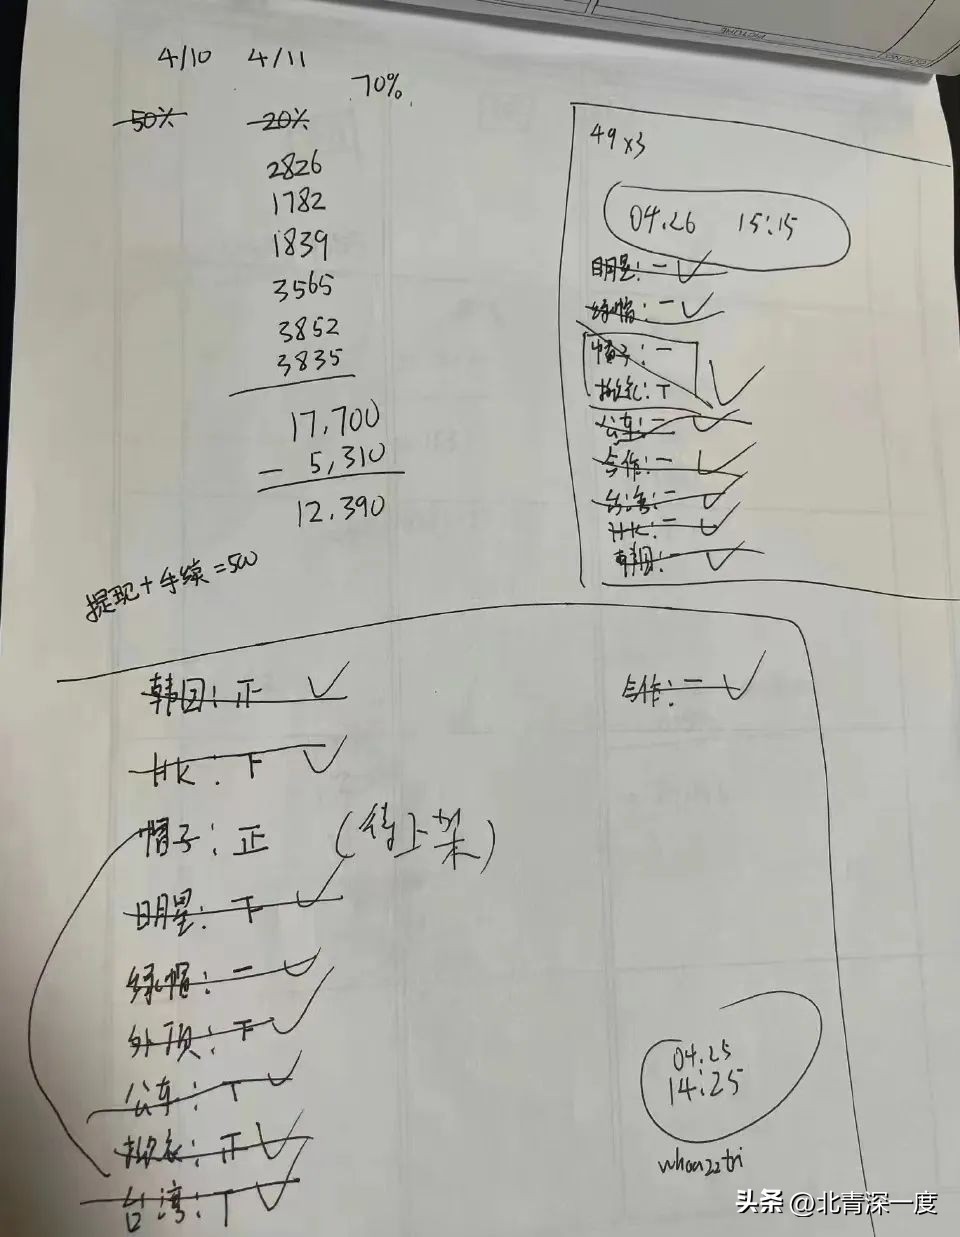 4/10 4/11
70%
50% 20%
2826
1782
1839
3565
3852
3835
17,700
- 5,310
12,390
提现+手续=500
49x3
04.26 15:15
明星:一
绿帽:一
帽子:一
公车:一
合作:一
台湾:一
HK:一
韩国:一
韩国:正
HK:下
帽子:正 (待上架)
明星:下
绿帽:一
外顶:下
公车:丅
台湾:丅
合作:一
04.25
14:25
头条 @北青深一度